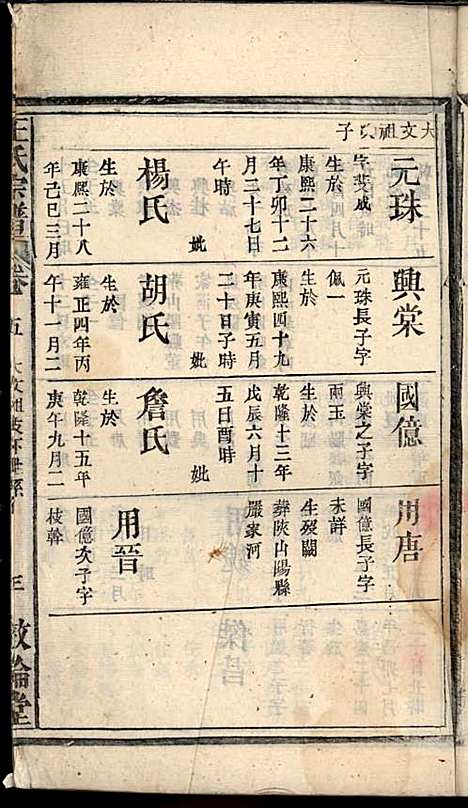 大文祖次子
元珠
字斐成
生於
康熙二十六
年丁卯十二
月二十七日
午時
妣
楊氏
生於
康熙二十八
年己巳三月
興棠
元珠長子字
佩一
生於
康熙四十九
年庚寅五月
二十日子時
妣
胡氏
生於
雍正四年丙
午十一月二
國億
興棠之子字
兩玉
生於
乾隆十三年
戊辰六月十
五日酉時
妣
詹氏
生於
乾隆十五年
庚午九月二
用唐
國億長子字
未詳
生歿闕
葬陜山陽縣
嚴家河
用晉
國億次子字
枝幹
王氏宗譜
卷
五
大文祖
三
敦倫堂